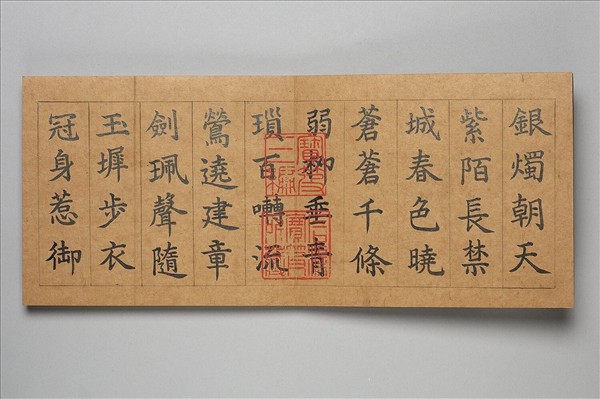 銀燭朝天
紫陌長禁
城春色曉
蒼蒼千條
弱柳垂青
瑣百囀流
鶯遶建章
劍珮聲隨
玉墀步衣
冠身惹御